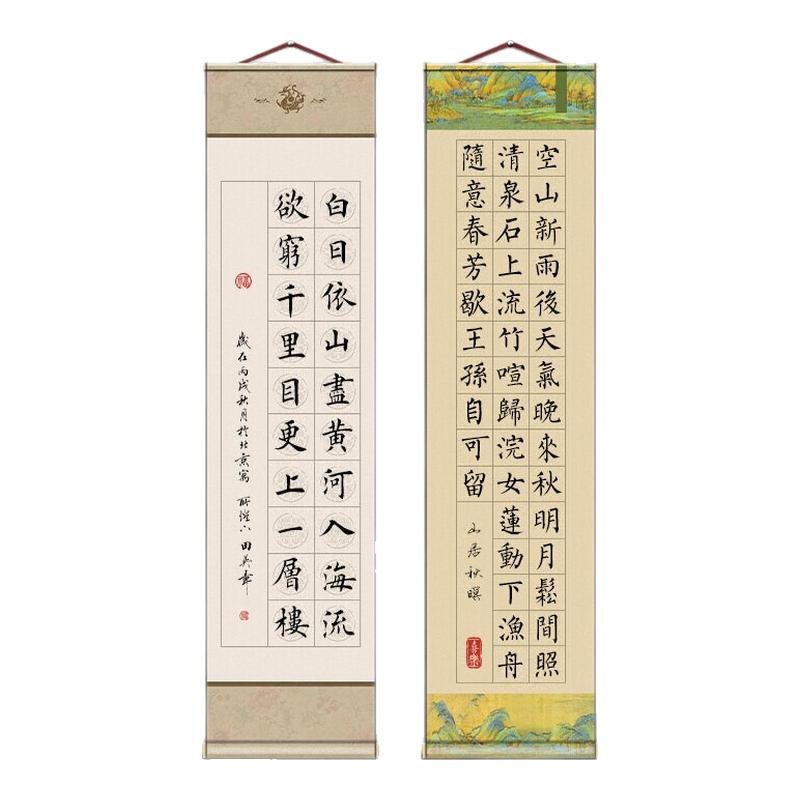 白日依山盡黄河入海流
欲窮千里目更上一層樓
歲在丙戌秋月於北京寓 田英章
空山新雨後天氣晚來秋明月鬆間照
清泉石上流竹喧歸浣女蓮動下漁舟
隨意春芳歇王孫自可留
山居秋暝